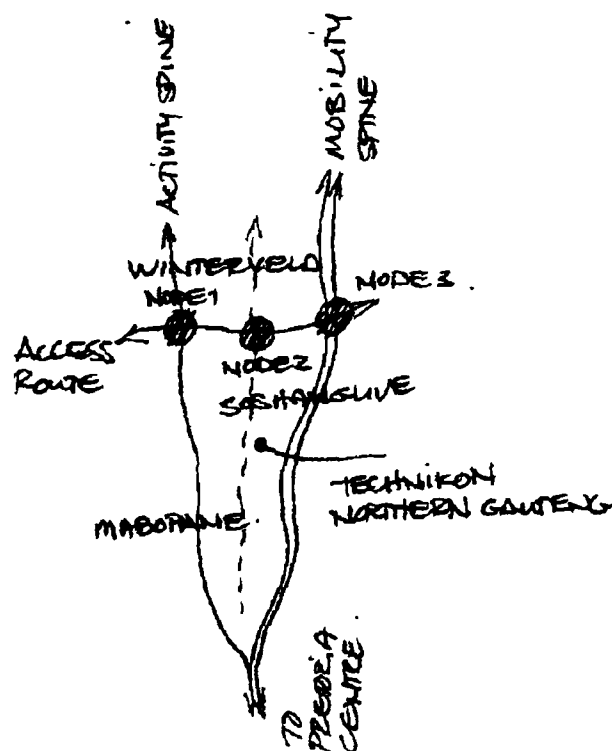 ACTIVITY SPINE
MOBILITY
SPINE
WINTERVELD
NODE1
NODE 3.
ACCESS
ROUTE
NODE2
SOSHANGUVE
TECHNIKON
NORTHERN GAUTENG
MABOPANE.
TO
PRETORIA
CENTRE.